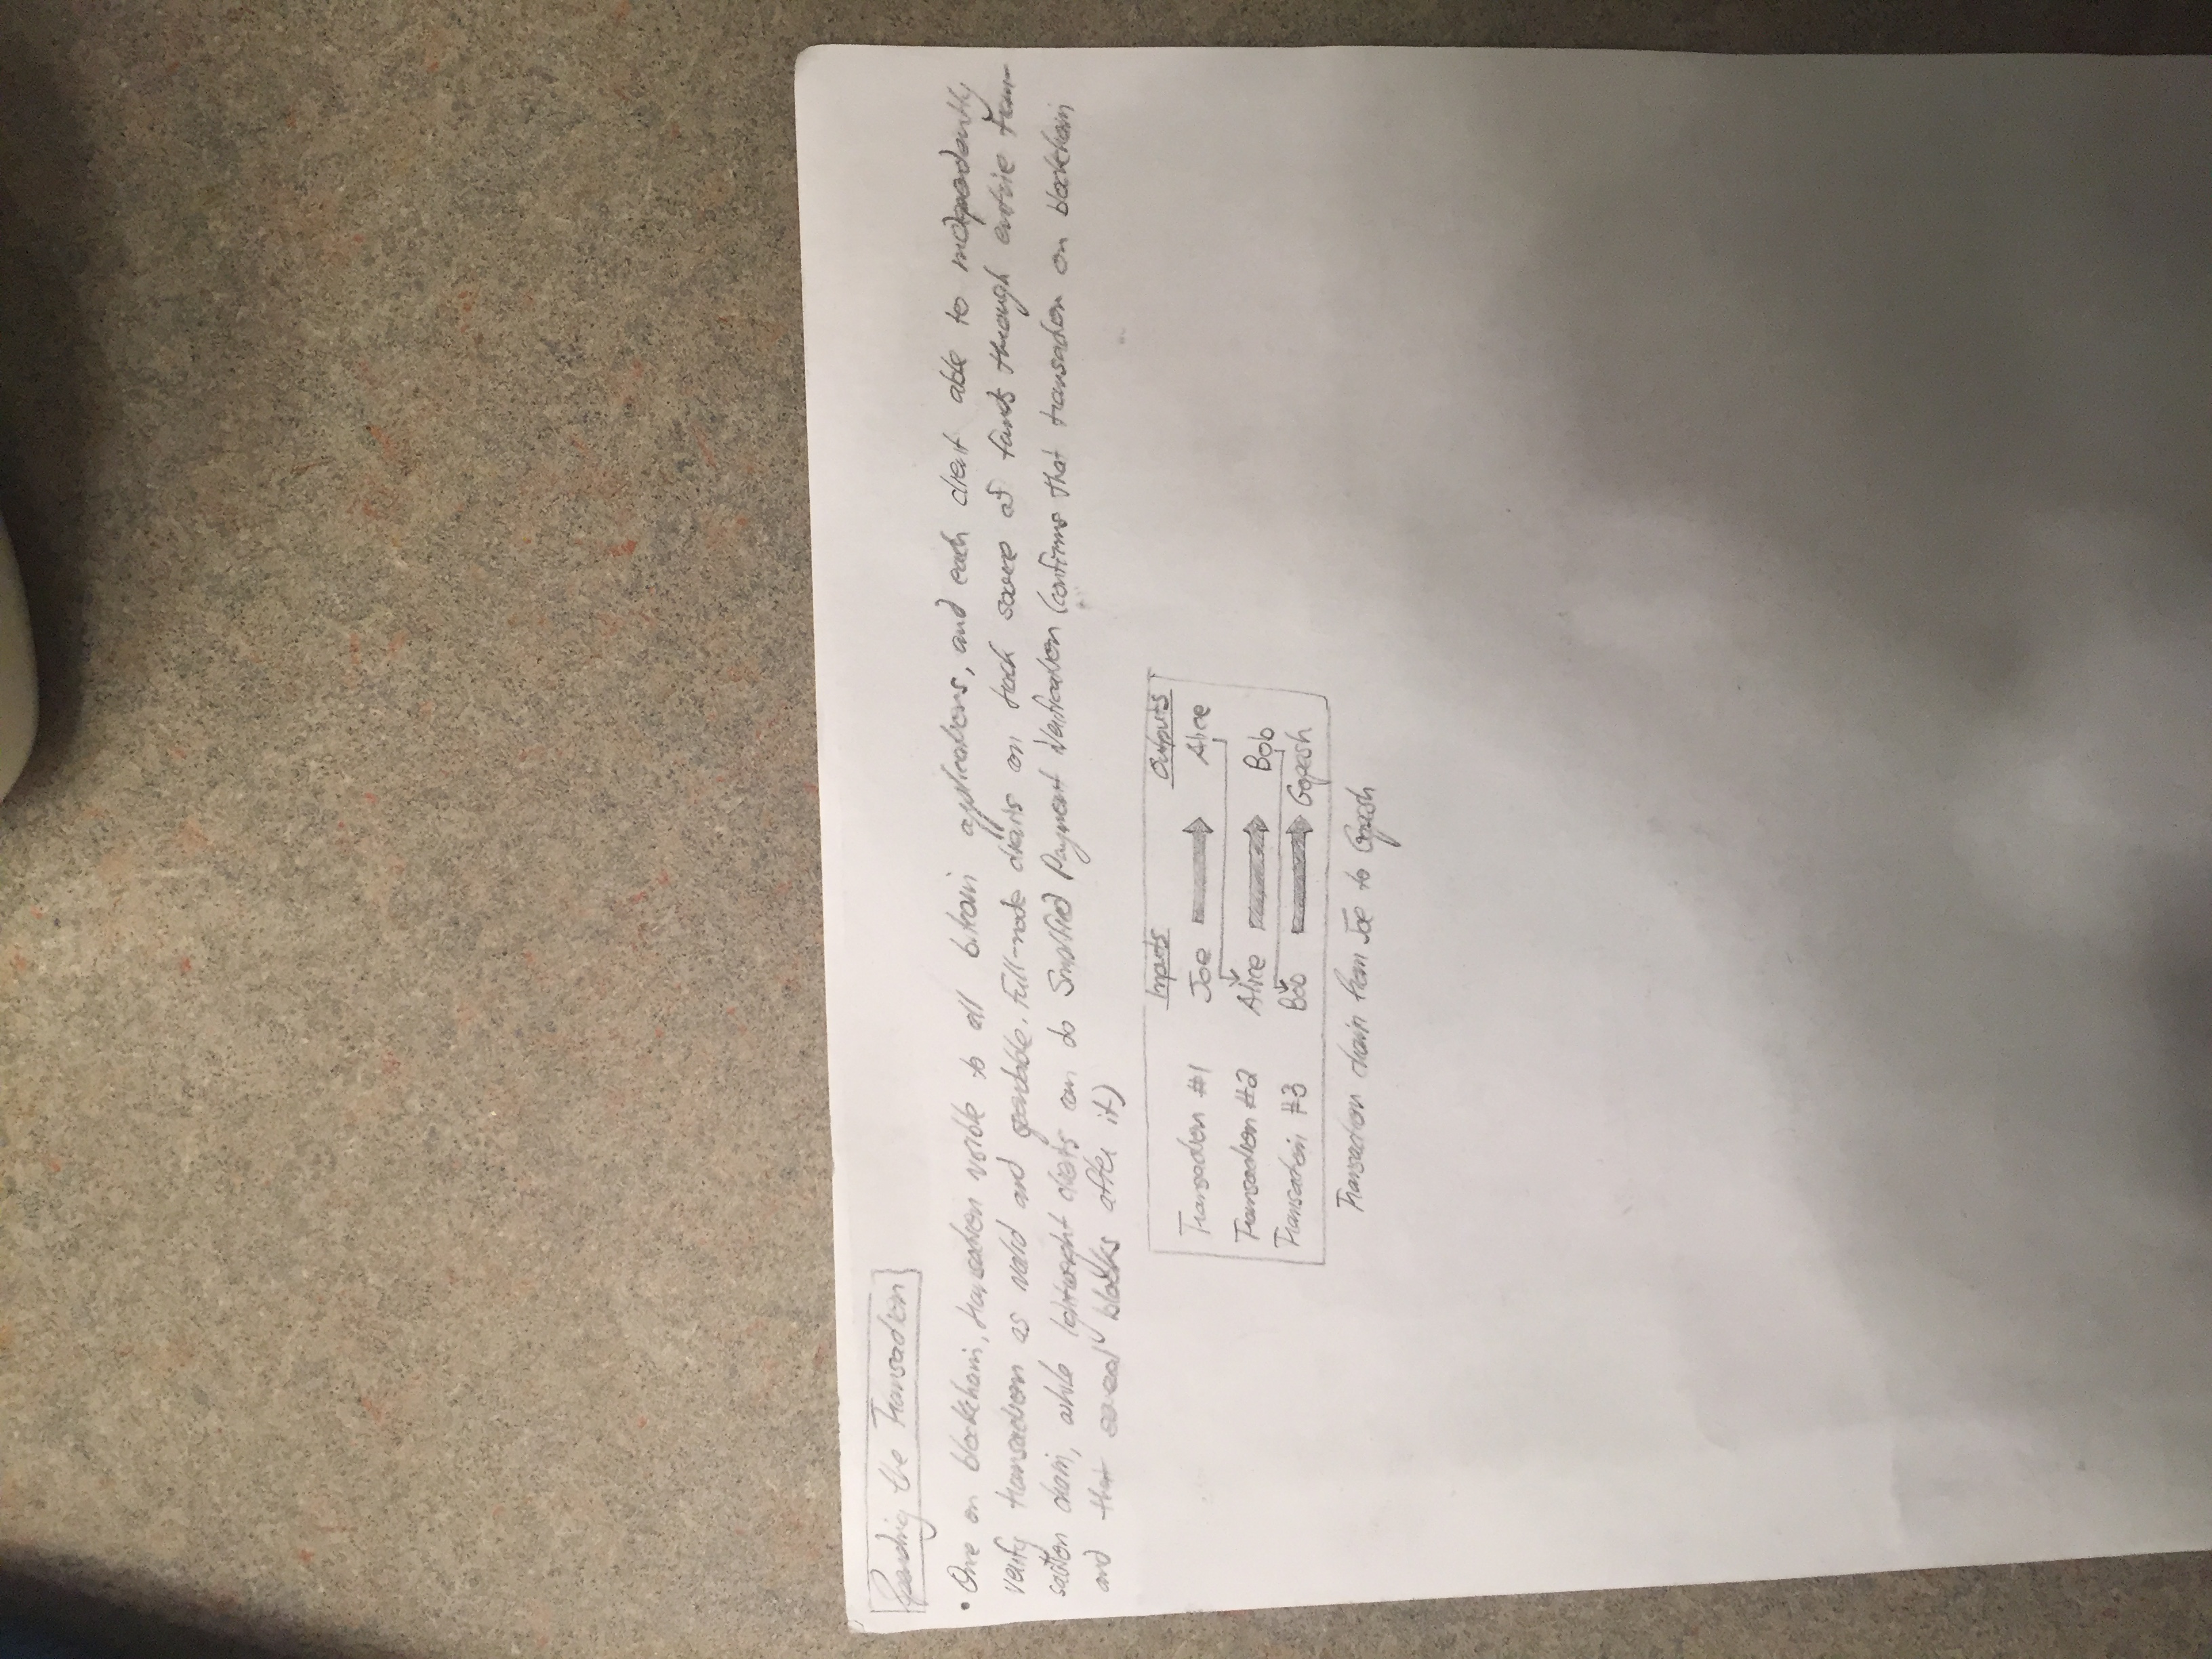 Spending the Transaction
• One on blockchain, transaction visible to all bitcoin applications, and each client able to independently
verify transaction as valid and spendable. full-node clients can track source of funds through entire tran-
saction chain, while lightweight clients can do Simplified Payment Verification (confirms that transaction on blockchain
and that several blocks after it)
Inputs Outputs
Transaction #1 Joe Alice
Transaction #2 Alice Bob
Transaction #3 Bob Gopesh
Transaction chain from Joe to Gopesh